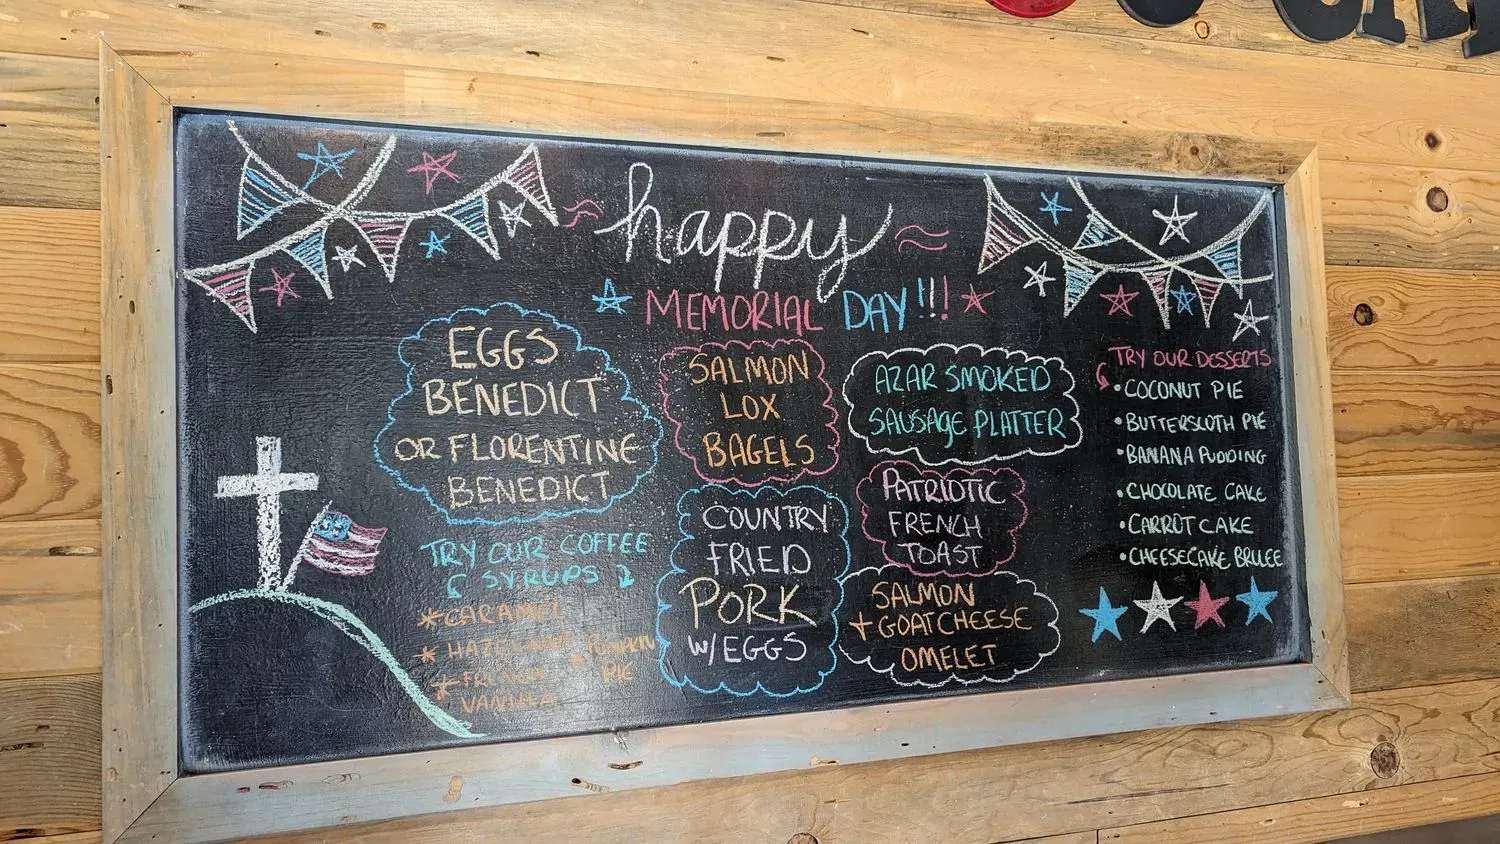 happy
MEMORIAL DAY!!!
EGGS
BENEDICT
OR FLORENTINE
BENEDICT
TRY OUR COFFEE
SYRUPS
* CARAMEL
* HAZELNUT
* FRENCH
VANILLA
* PUMPKIN
PIE
SALMON
LOX
BAGELS
COUNTRY
FRIED
PORK
W/EGGS
AZAR SMOKED
SAUSAGE PLATTER
PATRIOTIC
FRENCH
TOAST
SALMON
+ GOATCHEESE
OMELET
TRY OUR DESSERTS
• COCONUT PIE
• BUTTERSCOTH PIE
• BANANA PUDDING
• CHOCOLATE CAKE
• CARROT CAKE
• CHEESECAKE BRULEE